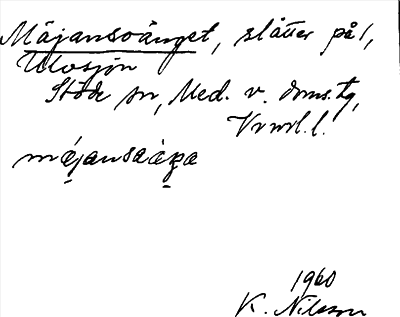 Måjansoänget, slåtter på 1,
Ulvsjön
Stöde sn, Med. v. doms. tg,
Vnrl. l.
måjansaäga
1960
K. Nilsson